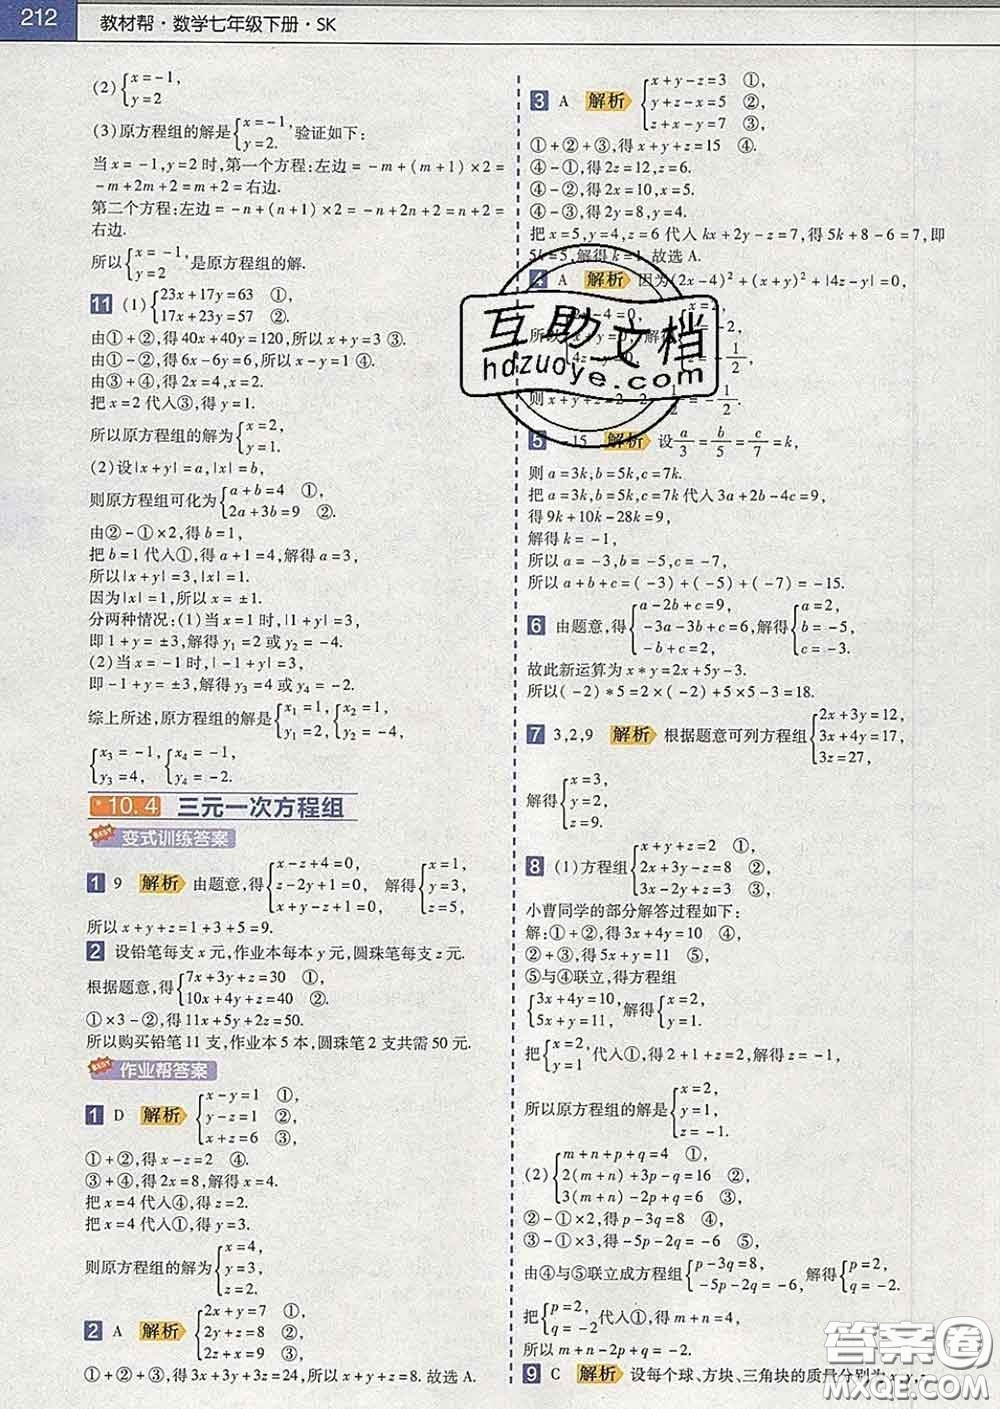 212 教材帮·数学七年级下册·SK
(2){x=-1,
y=2
(3)原方程组的解是{x=-1,验证如下:
y=2.
当x=-1,y=2时,第一个方程:左边=-m+(m+1)×2=
-m+2m+2=m+2=右边.
第二个方程:左边=-n+(n+1)×2=-n+2n+2=n+2=
右边.
所以{x=-1,是原方程组的解.
y=2
11 (1){23x+17y=63 ①,
17x+23y=57 ②.
由①+②,得40x+40y=120,所以x+y=3 ③.
由①-②,得6x-6y=6,所以x-y=1 ④.
由③+④,得2x=4,x=2.
把x=2代入③,得y=1.
所以原方程组的解为{x=2,
y=1.
(2)设|x+y|=a,|x|=b,
则原方程组可化为{a+b=4 ①,
2a+3b=9 ②.
由②-①×2,得b=1,
把b=1代入①,得a+1=4,解得a=3,
所以|x+y|=3,|x|=1.
因为|x|=1,所以x=±1.
分两种情况:(1)当x=1时,|1+y|=3,
即1+y=±3,解得y₁=2或y₂=-4.
(2)当x=-1时,|-1+y|=3,
即-1+y=±3,解得y₃=4或y₄=-2.
综上所述,原方程组的解是{x₁=1,{x₂=1,
y₁=2, y₂=-4,
{x₃=-1,{x₄=-1,
y₃=4, y₄=-2.
*10.4 三元一次方程组
BEST 变式训练答案
1 9 解析 由题意,得{x-z+4=0, 解得{x=1,
z-2y+1=0, y=3,
x+y-z+1=0, z=5,
所以x+y+z=1+3+5=9.
2 设铅笔每支x元,作业本每本y元,圆珠笔每支z元.
根据题意,得{7x+3y+z=30 ①,
10x+4y+z=40 ②.
①×3-②,得11x+5y+2z=50.
所以购买铅笔11支,作业本5本,圆珠笔2支共需50元.
BEST 作业帮答案
1 D 解析 {x-y=1 ①,
y-z=1 ②,
x+z=6 ③,
①+②,得x-z=2 ④.
③+④,得2x=8,解得x=4.
把x=4代入④,得z=2.
把x=4代入①,得y=3.
则原方程组的解为{x=4,
y=3,
z=2.
2 A 解析 {2x+y=7 ①,
2y+z=8 ②,
2z+x=9 ③,
①+②+③,得3x+3y+3z=24,所以x+y+z=8.故选A.
3 A 解析 {x+y-z=3 ①,
y+z-x=5 ②,
z+x-y=7 ③,
①+②+③,得x+y+z=15 ④.
④-①,得2z=12,z=6.
④-②,得2x=10,x=5.
④-③,得2y=8,y=4.
把x=5,y=4,z=6代入kx+2y-z=7,得5k+8-6=7,即
5k=5,解得k=1.故选A.
4 A 解析 因为(2x-4)²+(x+y)²+|4z-y|=0,
所以 x+y=0, 解得
则x+y+z=2-2-1/2=-1/2.
互助文档
hdzuoye.com
5 -15 解析 设a/3=b/5=c/7=k,
则a=3k,b=5k,c=7k.
把a=3k,b=5k,c=7k代入3a+2b-4c=9,
得9k+10k-28k=9,
解得k=-1,
所以a=-3,b=-5,c=-7,
所以a+b+c=(-3)+(-5)+(-7)=-15.
6 由题意,得{a-2b+c=9, 解得{a=2,
-3a-3b+c=6, b=-5,
-b+c=2, c=-3.
故此新运算为x*y=2x+5y-3.
所以(-2)*5=2×(-2)+5×5-3=18.
7 3,2,9 解析 根据题意可列方程组{2x+3y=12,
3x+4y=17,
3z=27,
解得{x=3,
y=2,
z=9.
8 (1)方程组{x+y+z=2 ①,
2x+3y-z=8 ②,
3x-2y+z=3 ③.
小曹同学的部分解答过程如下:
解:①+②,得3x+4y=10 ④,
②+③,得5x+y=11 ⑤.
⑤与④联立,得方程组
{3x+4y=10,解得{x=2,
5x+y=11, y=1.
把{x=2,代入①,得2+1+z=2,解得z=-1,
y=1
所以原方程组的解是{x=2,
y=1,
z=-1.
(2){m+n+p+q=4 ①,
2(m+n)+3p-q=16 ②,
3(m+n)-2p+q=6 ③,
②-①×2,得p-3q=8 ④,
③-①×3,得-5p-2q=-6 ⑤,
由④与⑤联立成方程组{p-3q=8, 解得{p=2,
-5p-2q=-6, q=-2.
把{p=2, 代入①,得m+n=4,
q=-2
所以m+n-2p+q=-2.
9 C 解析 设每个球、方块、三角块的质量分别为x,y,z
答案圈
MXQE.COM